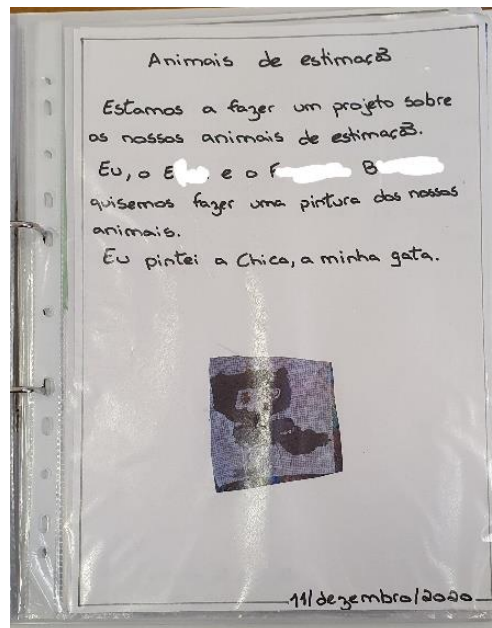 Animais de estimação
Estamos a fazer um projeto sobre
os nossos animais de estimação.
Eu, o E e o F B
quisemos fazer uma pintura dos nossos
animais.
Eu pintei a Chica, a minha gata.
11/dezembro/2020